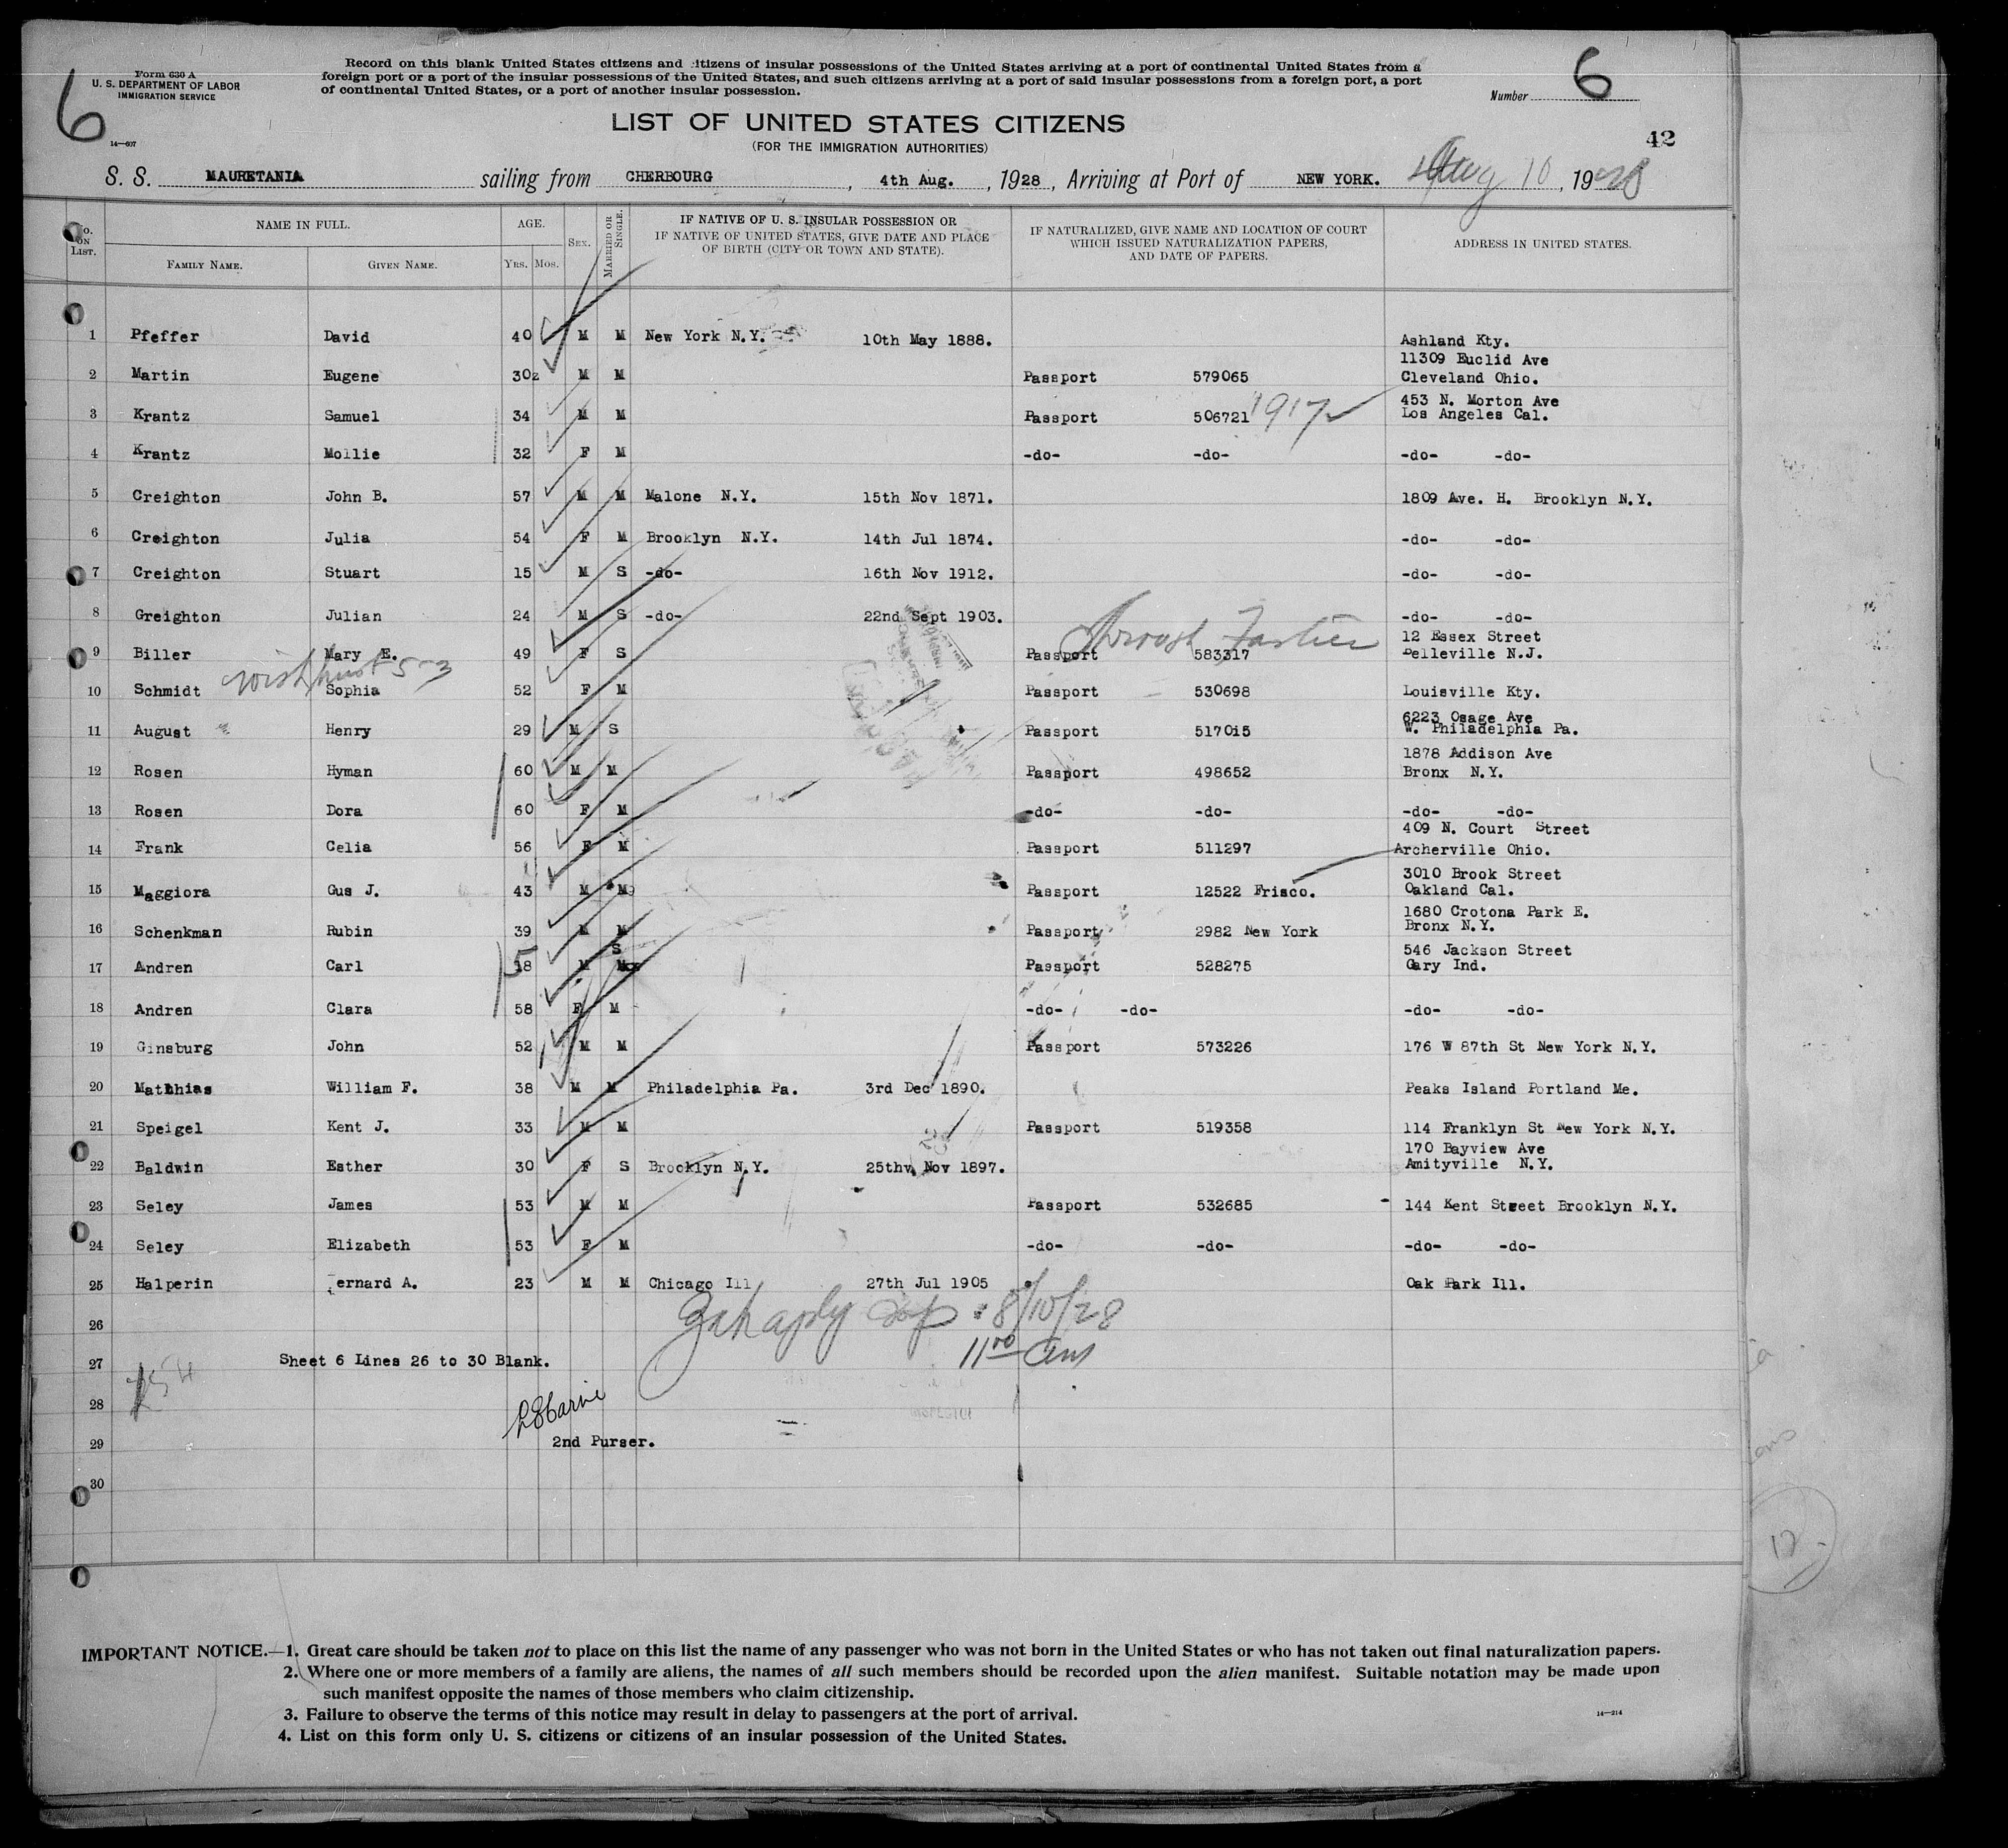 6
Form 630 A
U. S. DEPARTMENT OF LABOR
IMMIGRATION SERVICE
14—607
Record on this blank United States citizens and citizens of insular possessions of the United States arriving at a port of continental United States from a
foreign port or a port of the insular possessions of the United States, and such citizens arriving at a port of said insular possessions from a foreign port, a port
of continental United States, or a port of another insular possession.
Number 6
LIST OF UNITED STATES CITIZENS
(FOR THE IMMIGRATION AUTHORITIES)
42
S. S. MAURETANIA sailing from CHERBOURG, 4th Aug., 1928, Arriving at Port of NEW YORK. Aug 10, 1928
No. ON LIST. NAME IN FULL. FAMILY NAME. GIVEN NAME. AGE. YRS. MOS. SEX. MARRIED OR SINGLE. IF NATIVE OF U. S. INSULAR POSSESSION OR IF NATIVE OF UNITED STATES, GIVE DATE AND PLACE OF BIRTH (CITY OR TOWN AND STATE). IF NATURALIZED, GIVE NAME AND LOCATION OF COURT WHICH ISSUED NATURALIZATION PAPERS, AND DATE OF PAPERS. ADDRESS IN UNITED STATES.
1 Pfeffer David 40 M M New York N.Y. 10th May 1888. Ashland Kty.
11309 Euclid Ave
2 Martin Eugene 30 M M Passport 579065 Cleveland Ohio.
453 N. Morton Ave
3 Krantz Samuel 34 M M Passport 506721 1917 Los Angeles Cal.
4 Krantz Mollie 32 F M -do- -do- -do- -do-
5 Creighton John B. 57 M M Malone N.Y. 15th Nov 1871. 1809 Ave. H. Brooklyn N.Y.
6 Creighton Julia 54 F M Brooklyn N.Y. 14th Jul 1874. -do- -do-
7 Creighton Stuart 15 M S -do- 16th Nov 1912. -do- -do-
8 Greighton Julian 24 M S -do- 22nd Sept 1903. -do- -do-
12 Essex Street
9 Biller Mary E. 49 F S Passport 583317 Belleville N.J.
10 Schmidt Sophia 52 F M Passport 530698 Louisville Kty.
6223 Osage Ave
11 August Henry 29 M S Passport 517015 W. Philadelphia Pa.
1878 Addison Ave
12 Rosen Hyman 60 M M Passport 498652 Bronx N.Y.
13 Rosen Dora 60 F M -do- -do- -do- -do-
409 N. Court Street
14 Frank Celia 56 F M Passport 511297 Archerville Ohio.
3010 Brook Street
15 Maggiora Gus J. 43 M M Passport 12522 Frisco. Oakland Cal.
1680 Crotona Park E.
16 Schenkman Rubin 39 M M Passport 2982 New York Bronx N.Y.
546 Jackson Street
17 Andren Carl 58 M S Passport 528275 Gary Ind.
18 Andren Clara 58 F M -do- -do- -do- -do-
19 Ginsburg John 52 M M Passport 573226 176 W 87th St New York N.Y.
20 Matthias William F. 38 M M Philadelphia Pa. 3rd Dec 1890. Peaks Island Portland Me.
21 Speigel Kent J. 33 M M Passport 519358 114 Franklyn St New York N.Y.
170 Bayview Ave
22 Baldwin Esther 30 F S Brooklyn N.Y. 25th Nov 1897. Amityville N.Y.
23 Seley James 53 M M Passport 532685 144 Kent Street Brooklyn N.Y.
24 Seley Elizabeth 53 F M -do- -do- -do- -do-
25 Halperin ernard A. 23 M M Chicago Ill 27th Jul 1905 Oak Park Ill.
8/10/28
26
11 00 am
27 Sheet 6 Lines 26 to 30 Blank.
28
29 2nd Purser.
30
12
IMPORTANT NOTICE.—1. Great care should be taken not to place on this list the name of any passenger who was not born in the United States or who has not taken out final naturalization papers.
2. Where one or more members of a family are aliens, the names of all such members should be recorded upon the alien manifest. Suitable notation may be made upon
such manifest opposite the names of those members who claim citizenship.
3. Failure to observe the terms of this notice may result in delay to passengers at the port of arrival.
14—214
4. List on this form only U. S. citizens or citizens of an insular possession of the United States.